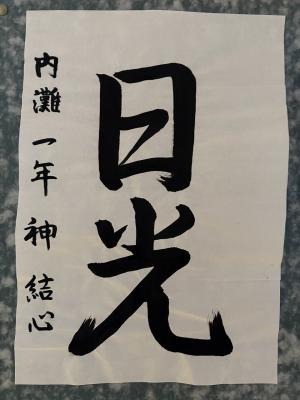 日光
内灘 一年 神 結心